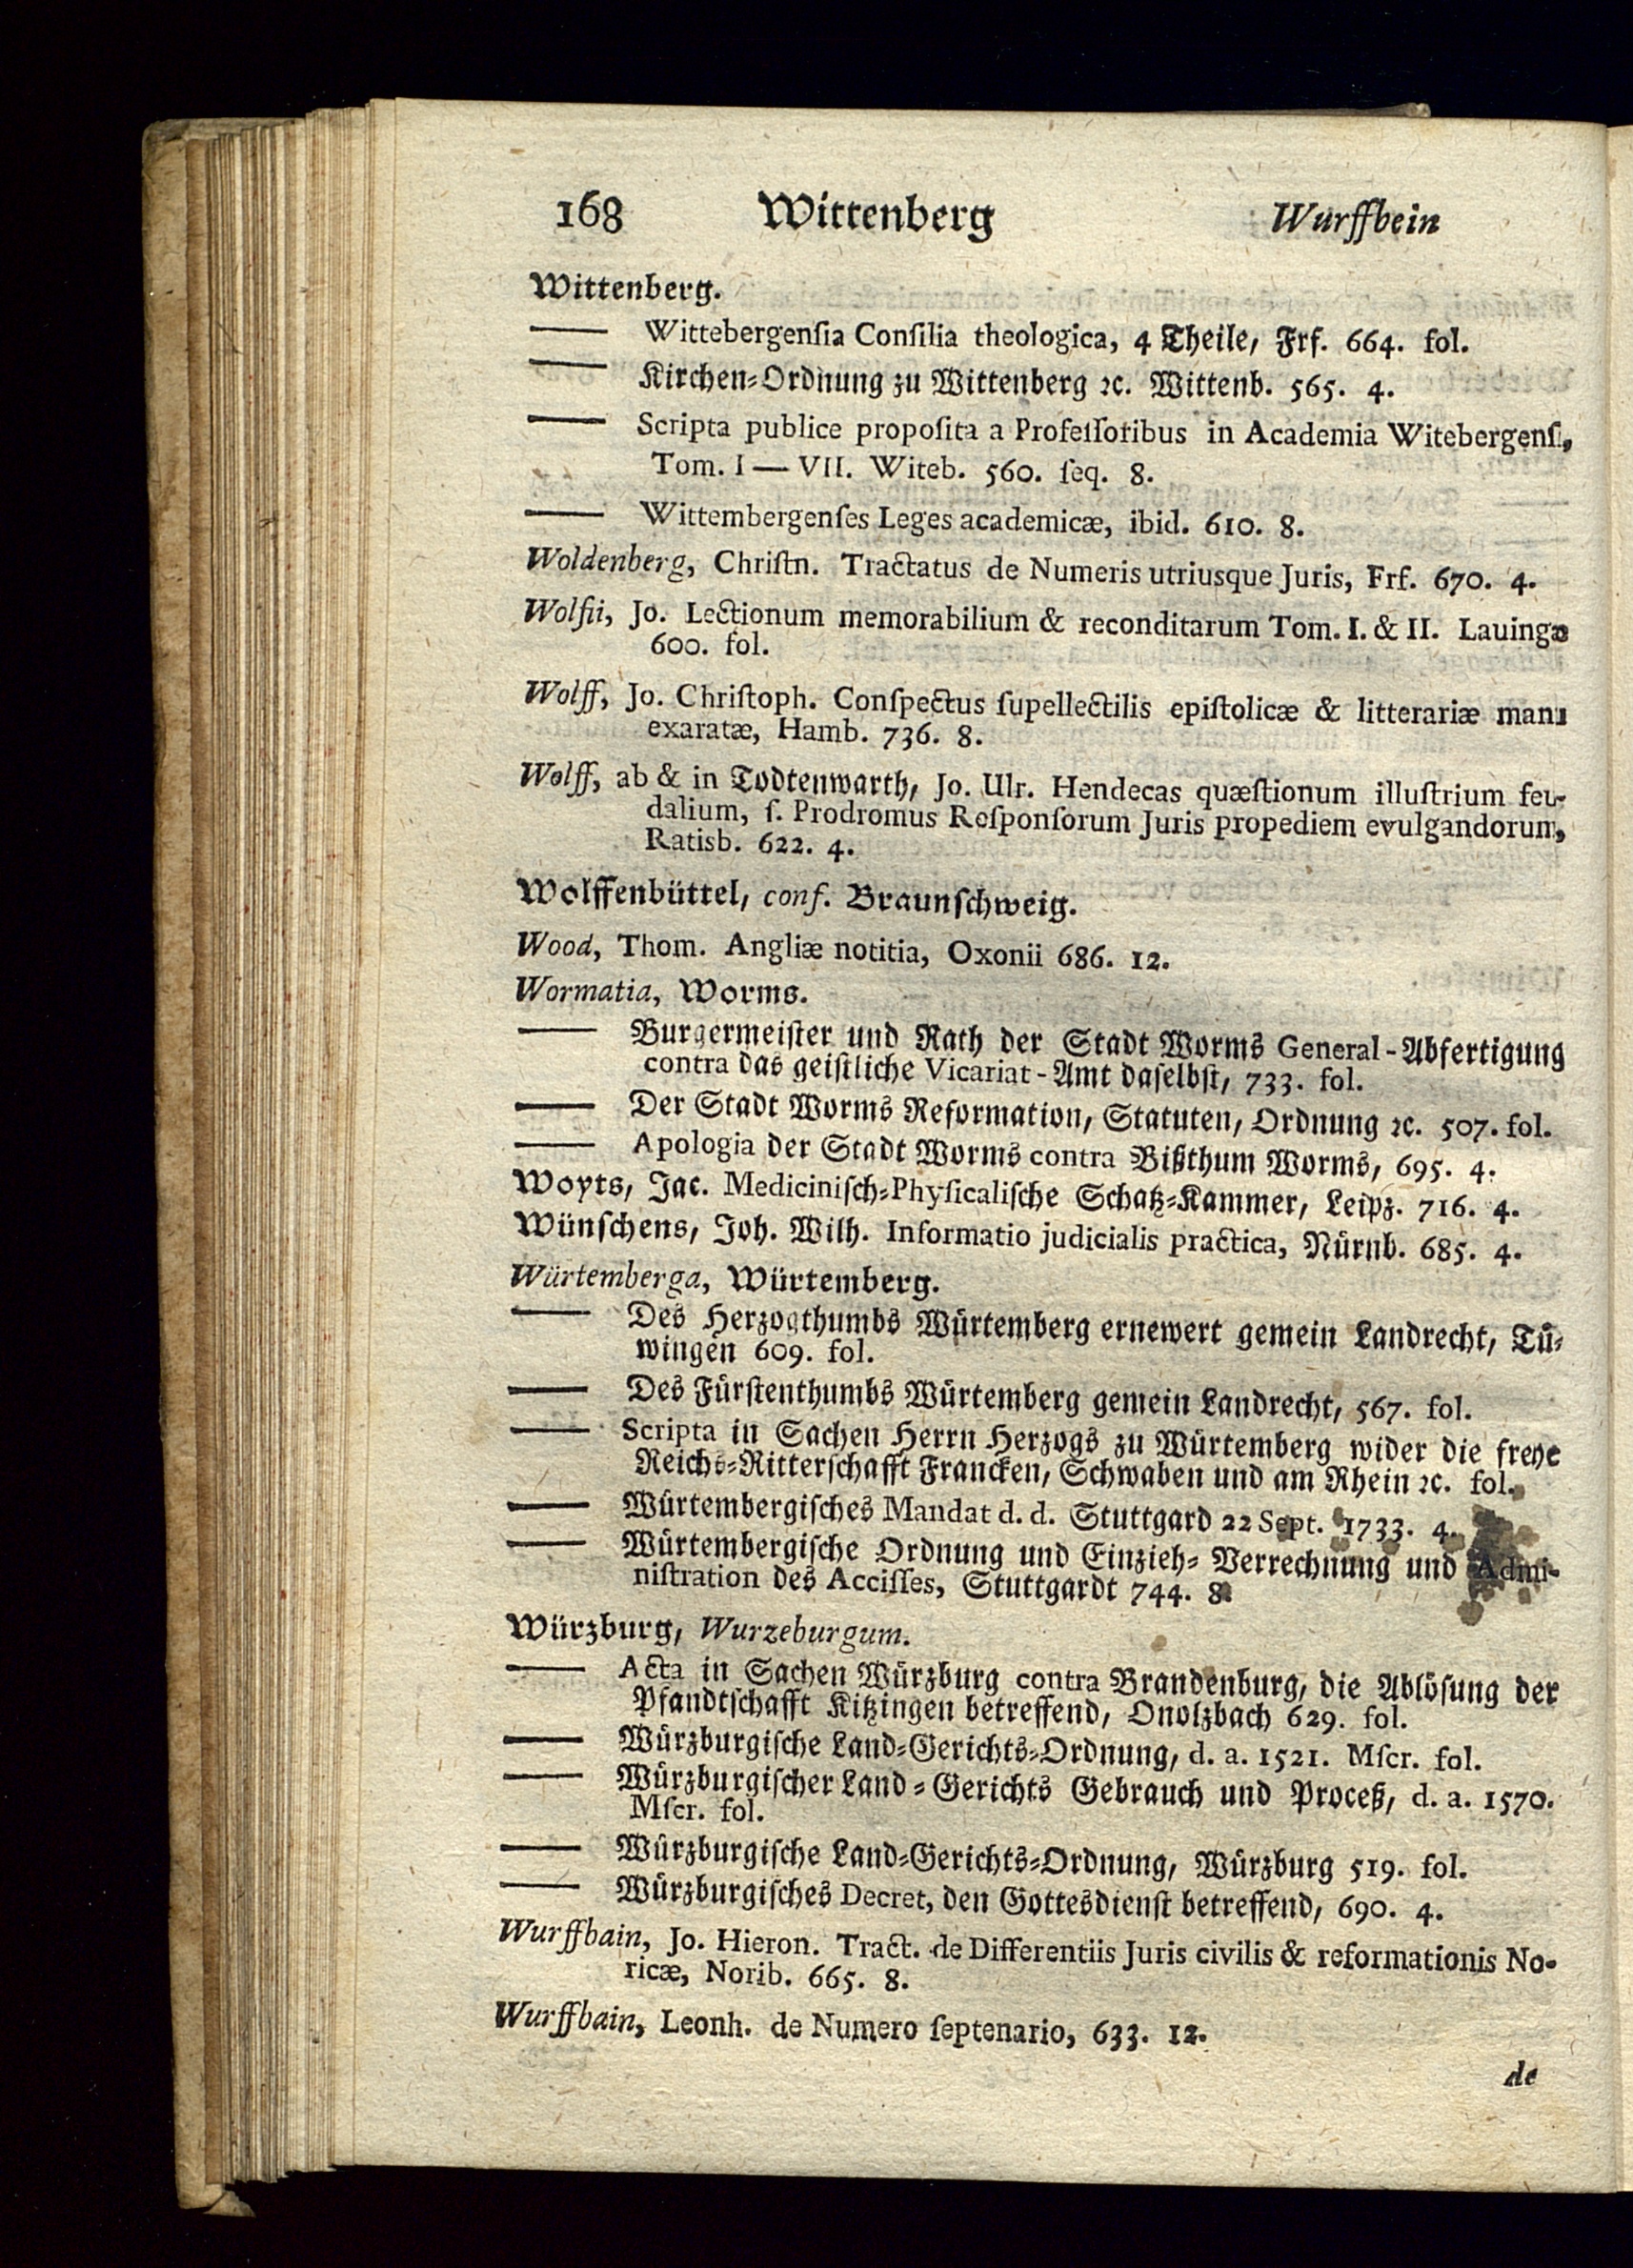 168 Wittenberg Wurffbein
Wittenberg.
—— Wittebergenſia Conſilia theologica, 4 Theile, Frf. 664. fol.
—— Kirchen-Ordnung zu Wittenberg ꝛc. Wittenb. 565. 4.
—— Scripta publice propoſita a Profeſſoribus in Academia Witebergenſi,
Tom. I — VII. Witeb. 560. ſeq. 8.
—— Wittembergenſes Leges academicæ, ibid. 610. 8.
Woldenberg, Chriſtn. Tractatus de Numeris utriusque Juris, Frf. 670. 4.
Wolfii, Jo. Lectionum memorabilium & reconditarum Tom. I. & II. Lauingæ
600. fol.
Wolff, Jo. Chriſtoph. Conſpectus ſupellectilis epiſtolicæ & litterariæ manu
exaratæ, Hamb. 736. 8.
Wolff, ab & in Todtenwarth, Jo. Ulr. Hendecas quæſtionum illuſtrium feu-
dalium, ſ. Prodromus Reſponſorum Juris propediem evulgandorum,
Ratisb. 622. 4.
Wolffenbüttel, conf. Braunſchweig.
Wood, Thom. Angliæ notitia, Oxonii 686. 12.
Wormatia, Worms.
—— Burgermeiſter und Rath der Stadt Worms General-Abfertigung
contra das geiſtliche Vicariat-Amt daſelbſt, 733. fol.
—— Der Stadt Worms Reformation, Statuten, Ordnung ꝛc. 507. fol.
—— Apologia der Stadt Worms contra Bißthum Worms, 695. 4.
Woyts, Jac. Mediciniſch-Phyſicaliſche Schatz-Kammer, Leipz. 716. 4.
Wünſchens, Joh. Wilh. Informatio judicialis practica, Nürnb. 685. 4.
Würtemberga, Würtemberg.
—— Des Herzogthumbs Würtemberg ernewert gemein Landrecht, Tü-
wingen 609. fol.
—— Des Fürſtenthumbs Würtemberg gemein Landrecht, 567. fol.
—— Scripta in Sachen Herrn Herzogs zu Würtemberg wider die freye
Reichs-Ritterſchafft Francken, Schwaben und am Rhein ꝛc. fol.
—— Würtembergiſches Mandat d. d. Stuttgard 22 Sept. 1733. 4.
—— Würtembergiſche Ordnung und Einzieh- Verrechnung und Admi-
niſtration des Acciſſes, Stuttgardt 744. 8.
Würzburg, Wurzeburgum.
—— Acta in Sachen Würzburg contra Brandenburg, die Ablöſung der
Pfandtſchafft Kitzingen betreffend, Onolzbach 629. fol.
—— Würzburgiſche Land-Gerichts-Ordnung, d. a. 1521. Mſcr. fol.
—— Würzburgiſcher Land-Gerichts Gebrauch und Proceß, d. a. 1570.
Mſcr. fol.
—— Würzburgiſche Land-Gerichts-Ordnung, Würzburg 519. fol.
—— Würzburgiſches Decret, den Gottesdienſt betreffend, 690. 4.
Wurffbain, Jo. Hieron. Tract. de Differentiis Juris civilis & reformationis No-
ricæ, Norib. 665. 8.
Wurffbain, Leonh. de Numero ſeptenario, 633. 12.
de